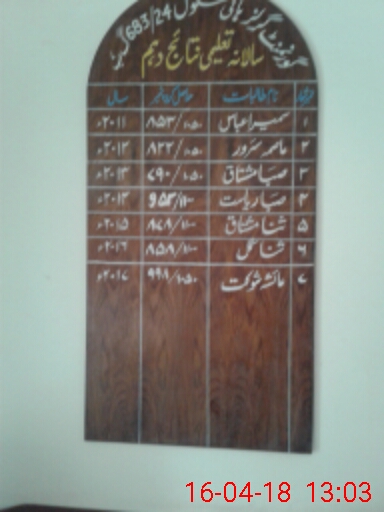 گورنمنٹ گرلز ہائی سکول 683/24 گ ب
سالانہ تعلیمی نتائج دہم
نام طالبات حاصل کردہ نمبر سال
۱ سمیرا عباس ۸۵۳/۱۰۵۰ ۲۰۱۱ء
۲ عاصمہ سرور ۸۲۲/۱۰۵۰ ۲۰۱۲ء
۳ صبا مشتاق ۷۹۰/۱۰۵۰ ۲۰۱۳ء
۴ صبا ریاست ۹۵۳/۱۱۰۰ ۲۰۱۴ء
۵ ثنا مشتاق ۸۷۸/۱۱۰۰ ۲۰۱۵ء
۶ ثنا گل ۸۵۸/۱۱۰۰ ۲۰۱۶ء
۷ عائشہ شوکت ۹۹۸/۱۰۵۰ ۲۰۱۷ء
16-04-18 13:03